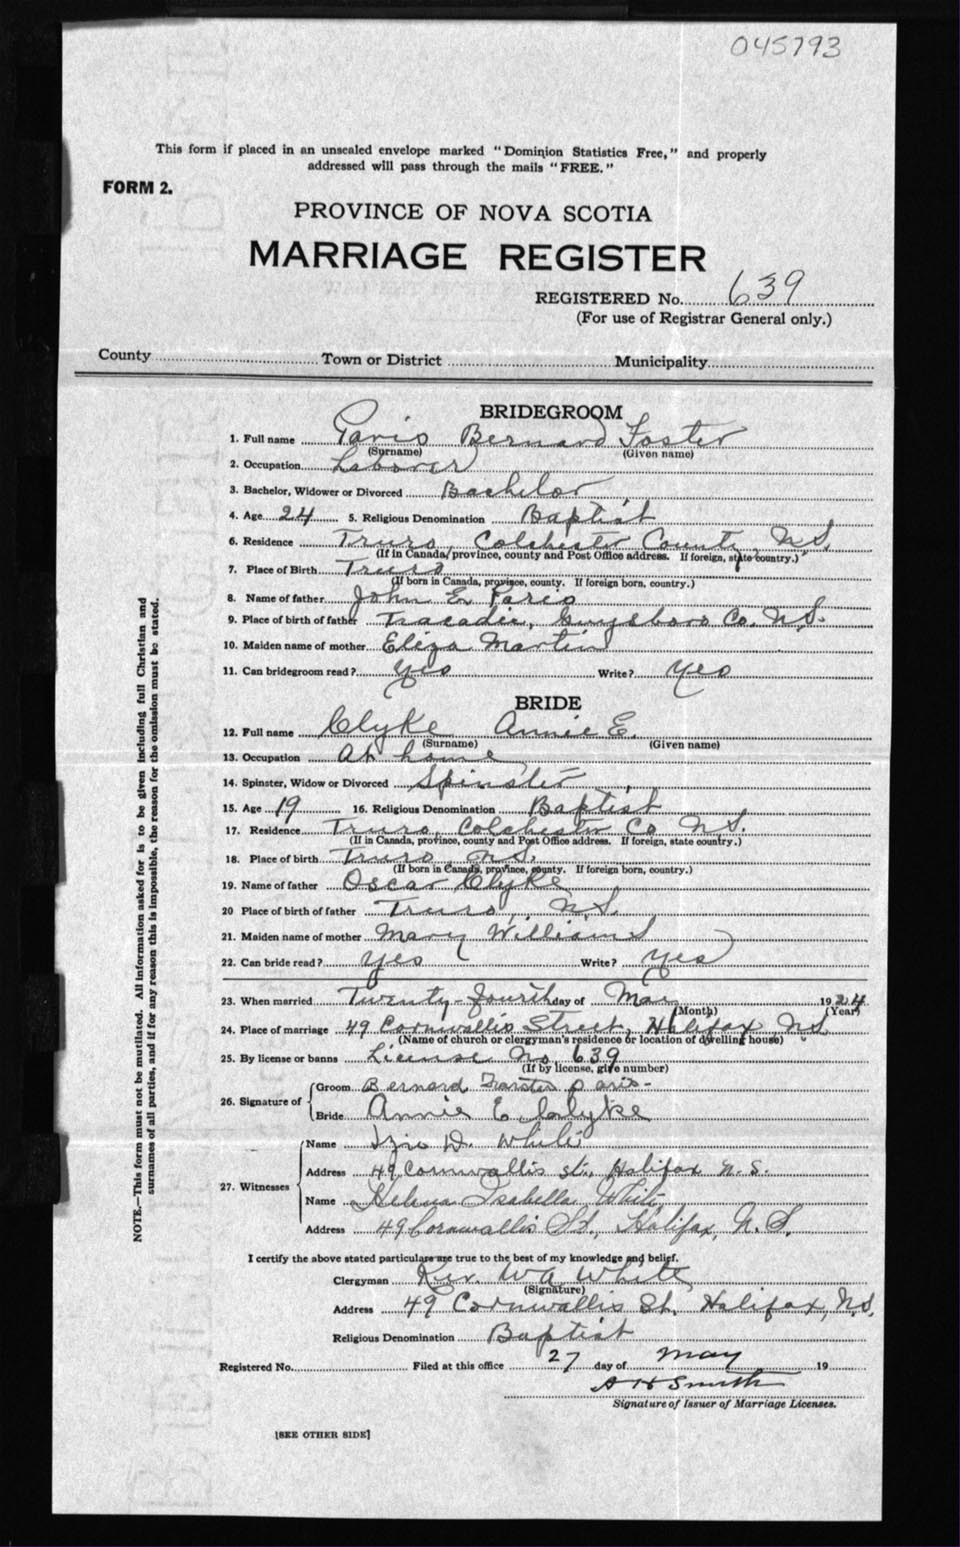 045793
This form if placed in an unsealed envelope marked "Dominion Statistics Free," and properly
addressed will pass through the mails "FREE."
FORM 2.
PROVINCE OF NOVA SCOTIA
MARRIAGE REGISTER
REGISTERED No. 639
(For use of Registrar General only.)
County Town or District Municipality
BRIDEGROOM
1. Full name Paris Bernard Foster
(Surname) (Given name)
2. Occupation Laborer
3. Bachelor, Widower or Divorced Bachelor
4. Age 24 5. Religious Denomination Baptist
6. Residence Truro, Colchester County, N.S.
(If in Canada, province, county and Post Office address. If foreign, state country.)
7. Place of Birth Truro
(If born in Canada, province, county. If foreign born, country.)
8. Name of father John E Paris
9. Place of birth of father Tracadie, Guysboro Co. N.S.
10. Maiden name of mother Eliza Martin
11. Can bridegroom read? Yes Write? Yes
BRIDE
12. Full name Clyke Annie E.
(Surname) (Given name)
13. Occupation At home
14. Spinster, Widow or Divorced Spinster
15. Age 19 16. Religious Denomination Baptist
17. Residence Truro, Colchester Co N.S.
(If in Canada, province, county and Post Office address. If foreign, state country.)
18. Place of birth Truro, N.S.
(If born in Canada, province, county. If foreign born, country.)
19. Name of father Oscar Clyke
20 Place of birth of father Truro, N.S.
21. Maiden name of mother Mary Williams
22. Can bride read? Yes Write? Yes
23. When married Twenty-fourth day of May 1924
(Month) (Year)
24. Place of marriage 49 Cornwallis Street, Halifax, N.S
(Name of church or clergyman's residence or location of dwelling house)
25. By license or banns License No, 639
(If by license, give number)
26. Signature of Groom Bernard Paris-
Bride Annie E. Clyke
27. Witnesses Name D. White
Address 49 Cornwallis st., Halifax N.S.
Name Helena Isabella White
Address 49 Cornwallis St., Halifax, N.S.
I certify the above stated particulars are true to the best of my knowledge and belief.
Clergyman Rev. W.A. White
(Signature)
Address 49 Cornwallis St. Halifax, N.S.
Religious Denomination Baptist
Registered No. Filed at this office 27 day of May 19
A H Smith
Signature of Issuer of Marriage Licenses.
[SEE OTHER SIDE]
NOTE.—This form must not be mutilated. All information asked for is to be given including full Christian and
surnames of all parties, and if for any reason this is impossible, the reason for the omission must be stated.